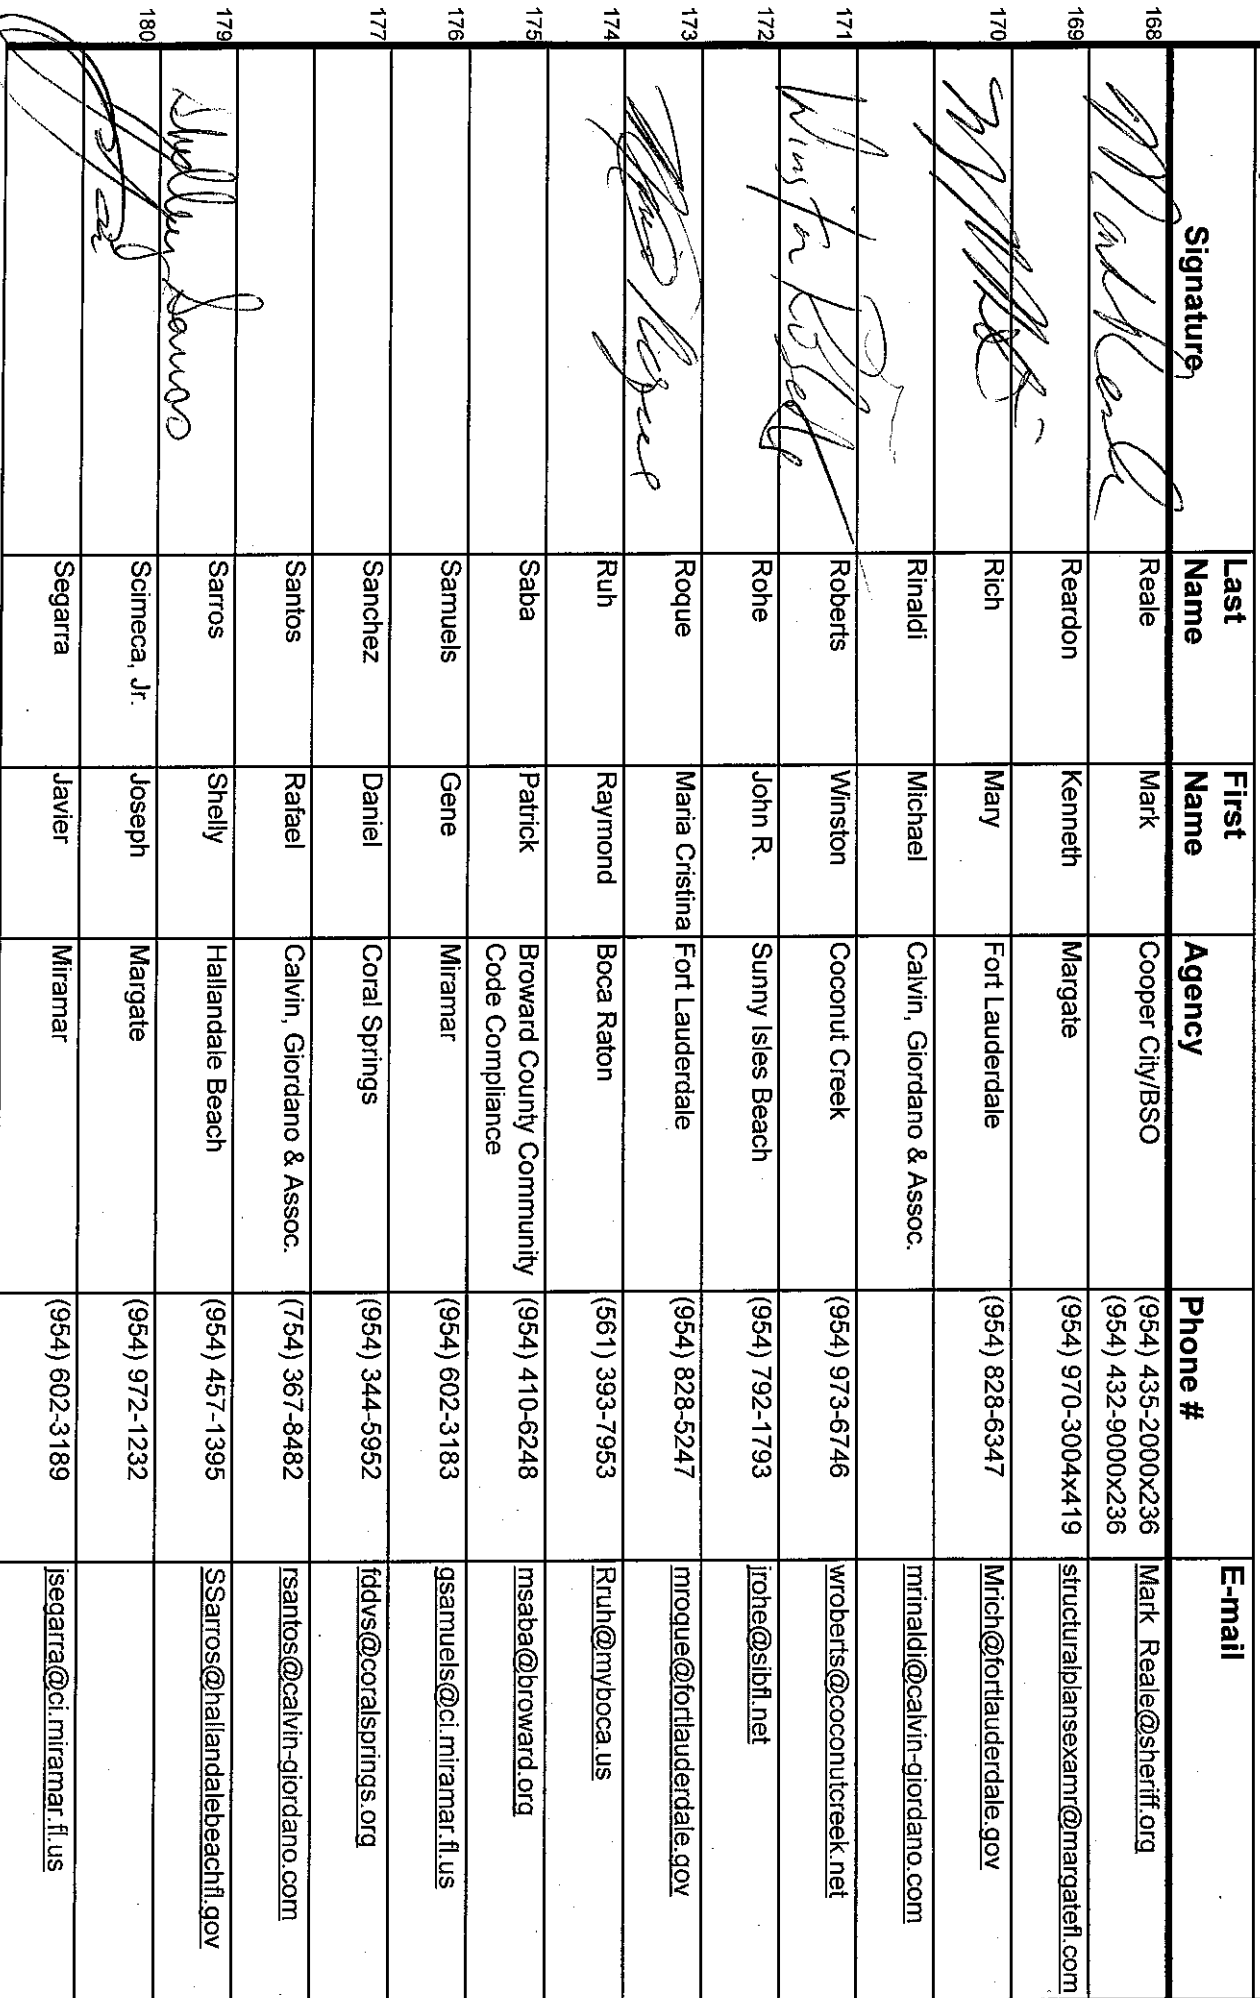 Signature Last Name First Name Agency Phone # E-mail
168 Mark Reale Reale Mark Cooper City/BSO (954) 435-2000x236 Mark_Reale@sheriff.org
(954) 432-9000x236
169 Reardon Kenneth Margate (954) 970-3004x419 structuralplansexamr@margatefl.com
170 Rich Mary Fort Lauderdale (954) 828-6347 Mrich@fortlauderdale.gov
Rinaldi Michael Calvin, Giordano & Assoc. mrinaldi@calvin-giordano.com
171 Winston Roberts Roberts Winston Coconut Creek (954) 973-6746 wroberts@coconutcreek.net
172 Rohe John R. Sunny Isles Beach (954) 792-1793 jrohe@sibfl.net
173 Roque Maria Cristina Fort Lauderdale (954) 828-5247 mroque@fortlauderdale.gov
174 Ruh Raymond Boca Raton (561) 393-7953 Rruh@myboca.us
175 Saba Patrick Broward County Community (954) 410-6248 msaba@broward.org
Code Compliance
176 Samuels Gene Miramar (954) 602-3183 gsamuels@ci.miramar.fl.us
177 Sanchez Daniel Coral Springs (954) 344-5952 fddvs@coralsprings.org
Santos Rafael Calvin, Giordano & Assoc. (754) 367-8482 rsantos@calvin-giordano.com
179 Shelley Sarros Sarros Shelly Hallandale Beach (954) 457-1395 SSarros@hallandalebeachfl.gov
180 Scimeca, Jr. Joseph Margate (954) 972-1232
Segarra Javier Miramar (954) 602-3189 jsegarra@ci.miramar.fl.us